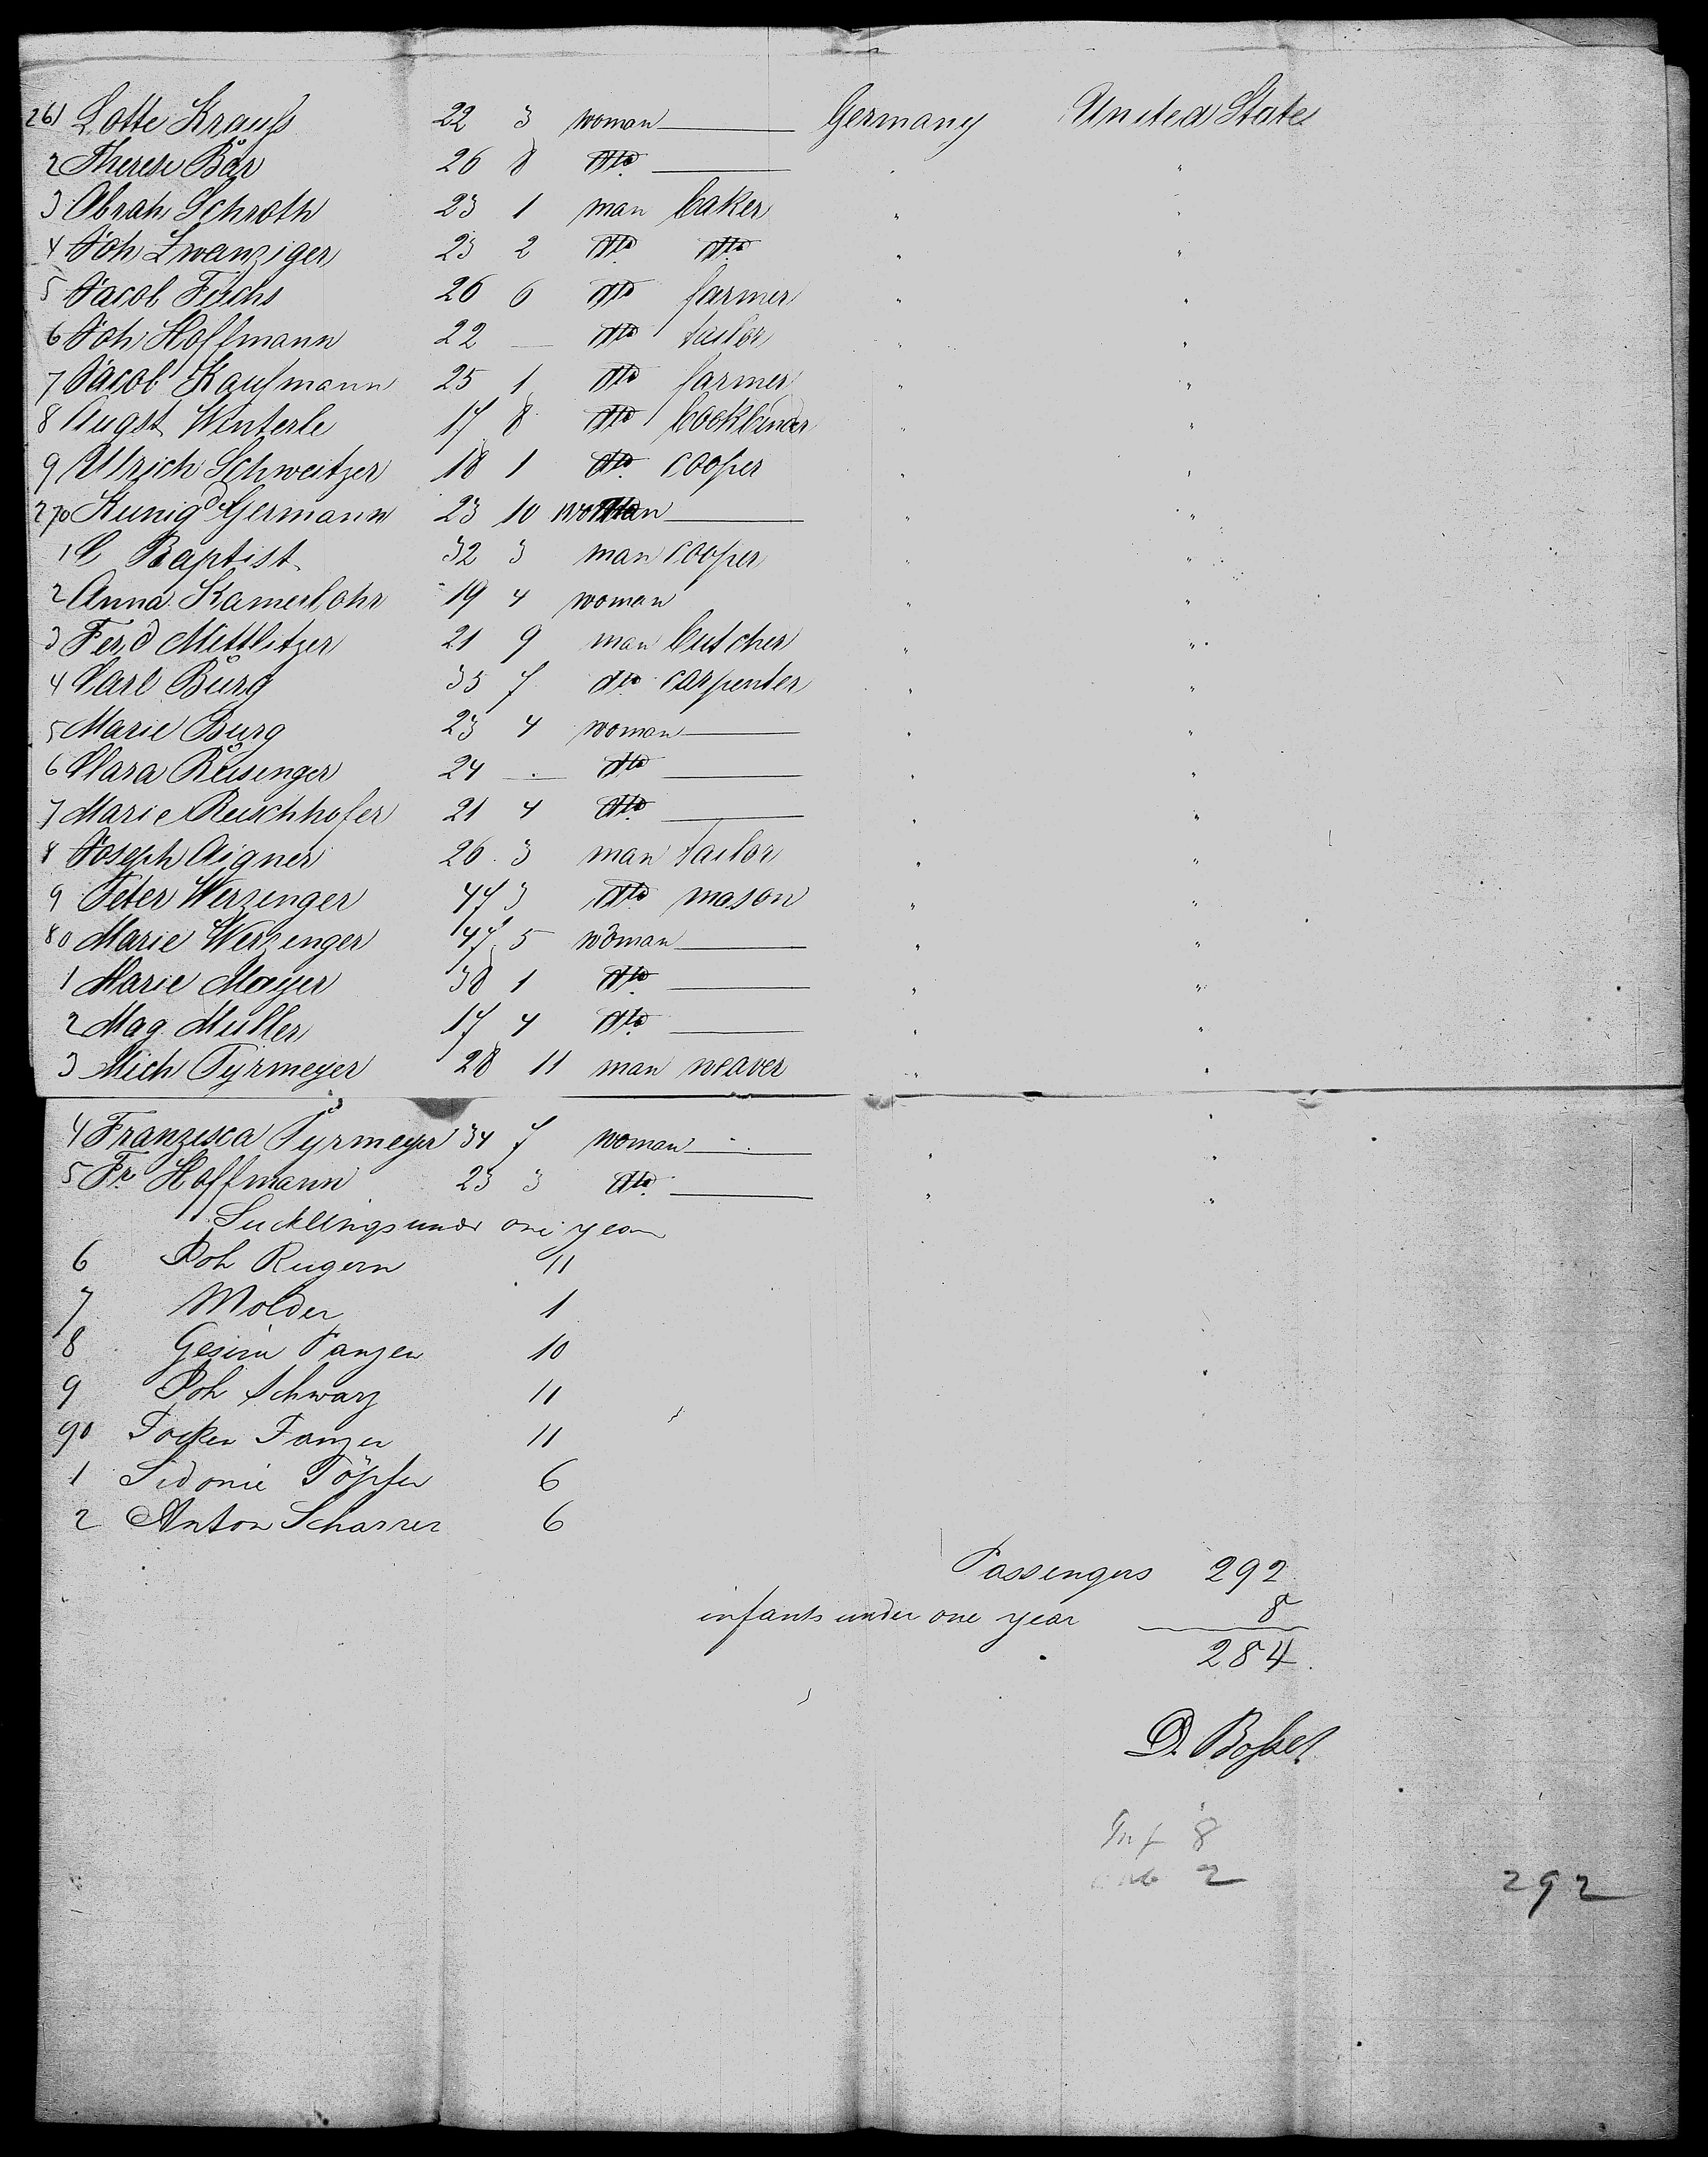 261 Lotte Krauſs 22 3 woman Germany United States
2 Therese Bår 26 8 dto "
3 Abrah Schroth 23 1 man baker " "
4 Joh Zwanziger 23 2 dto dto " "
5 Jacob Fuchs 26 6 dto farmer " "
6 Joh Hoffmann 22 — dto tailor " "
7 Jacob Kaufmann 25 1 dto farmer " "
8 Augst Winterle 17 8 dto bookbinder " "
9 Ullrich Schweitzer 18 1 dto cooper " "
270 Kunigd Germann 23 10 woman " "
1 C Baptist 32 3 man cooper " "
2 Anna Kamerlohr 19 4 woman " "
3 Ferd Mittlitzer 21 9 man butcher " "
4 Carl Bůrg 35 7 dto carpenter " "
5 Marie Burg 23 4 woman " "
6 Clara Reisinger 24 — dto " "
7 Marie Reischhofer 21 4 dto " "
8 Joseph Aigner 26 3 man tailor " "
9 Peter Werzenger 47 3 dto mason " "
80 Marie Werzenger 47 5 woman " "
1 Marie Mayer 38 1 dto " "
2 Mag. Muller 17 4 dto " "
3 Mich Tyrmeyer 28 11 man weaver " "
4 Franzisca Tyrmeyer 34 7 woman " "
5 Fr. Hoffmann 23 3 dto " "
Sucklings under one year
6 Joh Rugern 11
7 Molder 1
8 Gesine Panzen 10
9 Joh Schwarz 11
90 Focken Fanzen 11
1 Sidonie Töpfer 6
2 Anton Scharrer 6
Passengers 292
infants under one year 8
284
D. Boſse
Inf 8
2
292